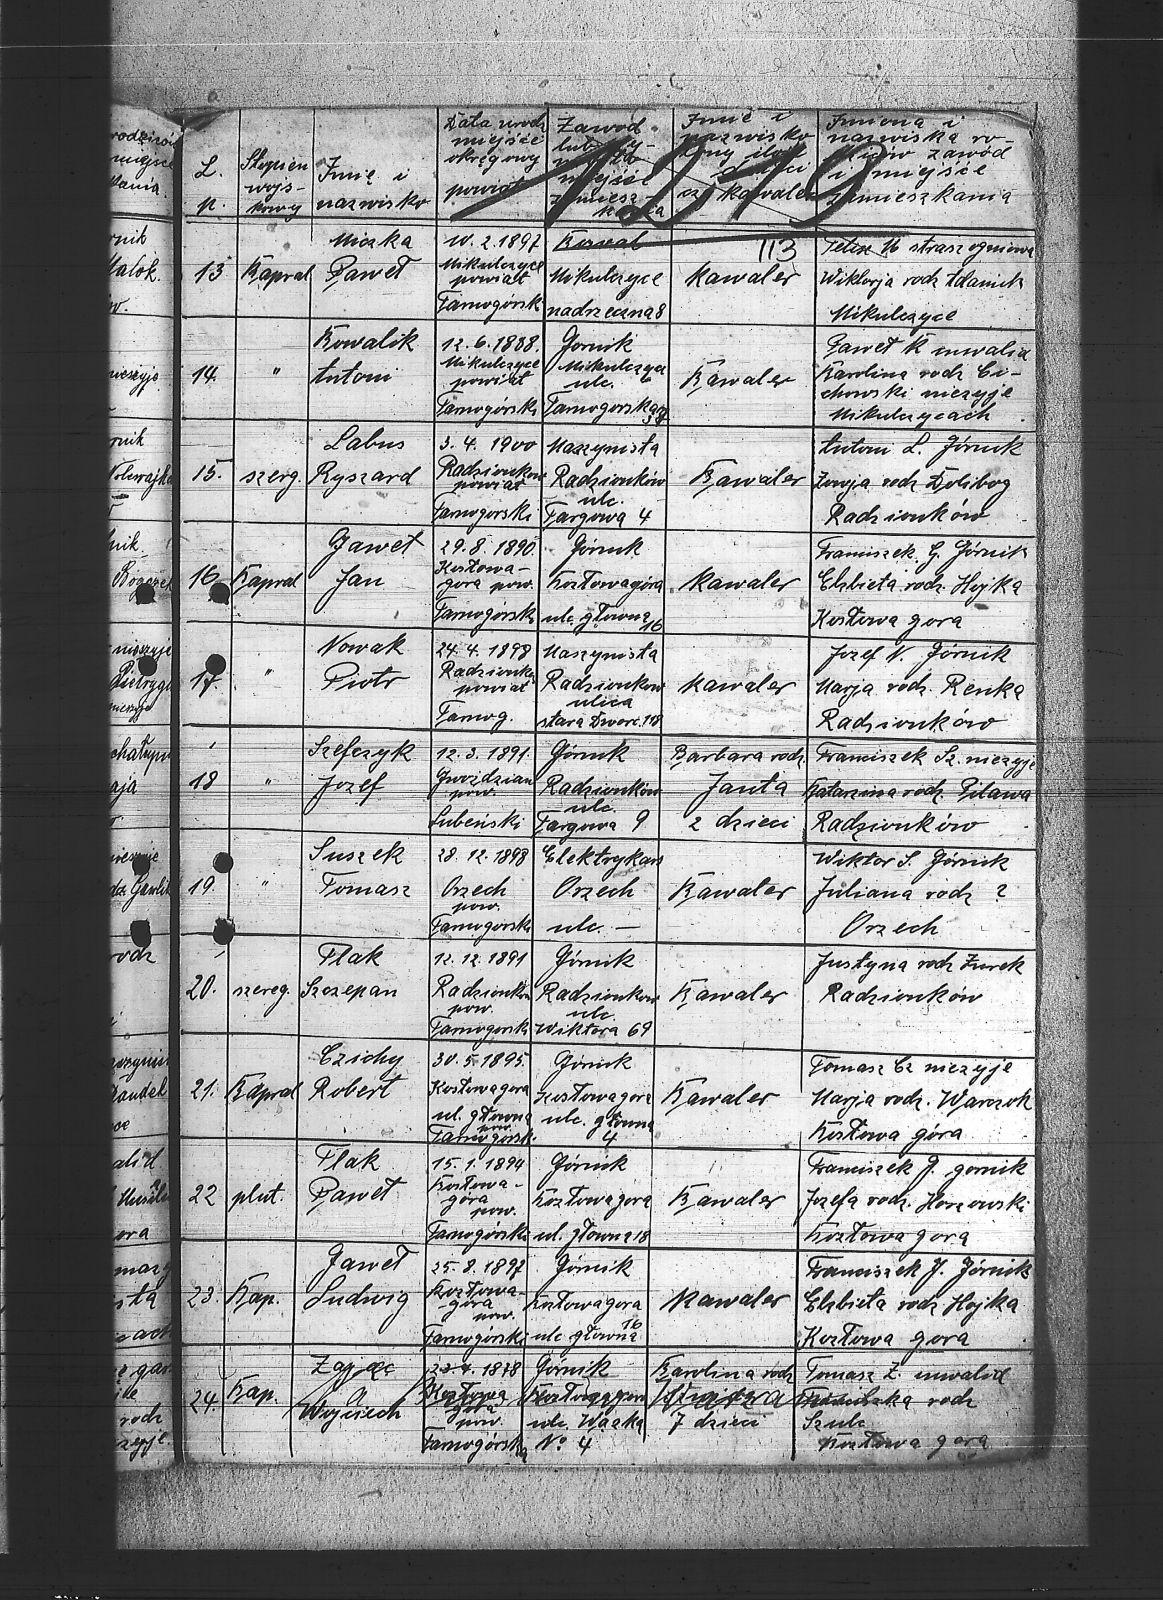 L. p.
Stopień wojs- kowy
Imię i nazwisko
Data urodz miejsce okręgowy powiat
Zawód
miejsce zamiesz- kania
Imię i nazwisko żony ilość dzieci czy kawaler
Imiona i nazwiska ro- dziców zawód i miejsce zamieszkania
1919
113
13 Kapral
Miczka Paweł
10.2.1897 Mikulczyce powiat Tarnogórsk
Kowal Mikulczyce nadrzeczna 8
Kawaler
Wiktorja rodz Adamik
Mikulczyce
14. "
Kowalik Antoni
12.6.1888. Mikulczyce powiat Tarnogórski
Górnik Mikulczyce ulc. Tarnogorska
Kawaler
Paweł K inwalid
Karolina rodz Ci-
chowski nieżyje
Mikulczycach
15. szerg.
Labus Ryszard
3.4.1900 Radzionków powiat Tarnogorski
Maszynista Radzionków ulc. Targowa 4
Kawaler
Antoni L. Górnik
Zowja rodz Dolibog
Radzionków
16 Kapral
Gaweł Jan
29.8.1890. Kozłowa- gora pow. Tarnogorsk
Górnik Kozłowagóra ulc. głowna 16
Kawaler
Franciszek G. Górnik
Elzbieta rodz. Hojka
Kozłowa gora
17. "
Nowak Piotr
24.4.1898 Radzionk. powiat Tarnog.
Maszynista Radzionkow ulica stara Dworc. 118
Kawaler
Jozef N. Górnik
Marja rodz. Renka
Radzionków
18 "
Szefczyk Jozef
12.3.1891. Gwoździan pow. Lubeński
Górnik Radzionków ulc. Targowa 9
Barbara rodz. Janta 2 dzieci
Franciszek Sz. niezyje
Katarzina rodz. Pilawa
Radzionków
19. "
Suszek Tomasz
28.12.1898 Orzech pow. Tarnogorski
Elektrykarz Orzech ulc. —
Kawaler
Wiktor S. Górnik
Juliana rodz ?
Orzech
20. szereg.
Flak Szczepan
12.12.1891 Radzionkow pow. Tarnogorsk
Górnik Radzionkow ulc. Wiktora 69
Kawaler
Justyna rodz Zurek
Radzionków
21. Kapral
Czichy Robert
30.5.1895. Kozłowagora ul. głowna pow. Tarnogorsk.
Górnik Kozłowagora ulc. głowna 4
Kawaler
Tomasz Cz niezyje
Marja rodz. Warczok
Kozłowa góra
22 plut.
Flak Paweł
15.1.1894 Kozłowa- góra pow. Tarnogórski
Górnik Kozłowagora ul. głowna 18
Kawaler
Franciszek J. gornik
Jozefa rodz. Horzowski
Kozłowa gora
23. Kap.
Gaweł Ludwig
25.8.1897 Kozłowa- góra pow. Tarnogórski
Górnik Kozłowagora ulc głowna 16
Kawaler
Franciszek J. Górnik
Elzbieta rodz Hojka
Kozłowa gora
24. Kap.
Zając Wojciech
Kozłowa góra pow. Tarnogórska
Górnik Kozłowagora ulc. Wązka No 4
Karolina rodz 7 dzieci
Tomasz Z. inwalid
rodz
Szulc
Kozłowa gora